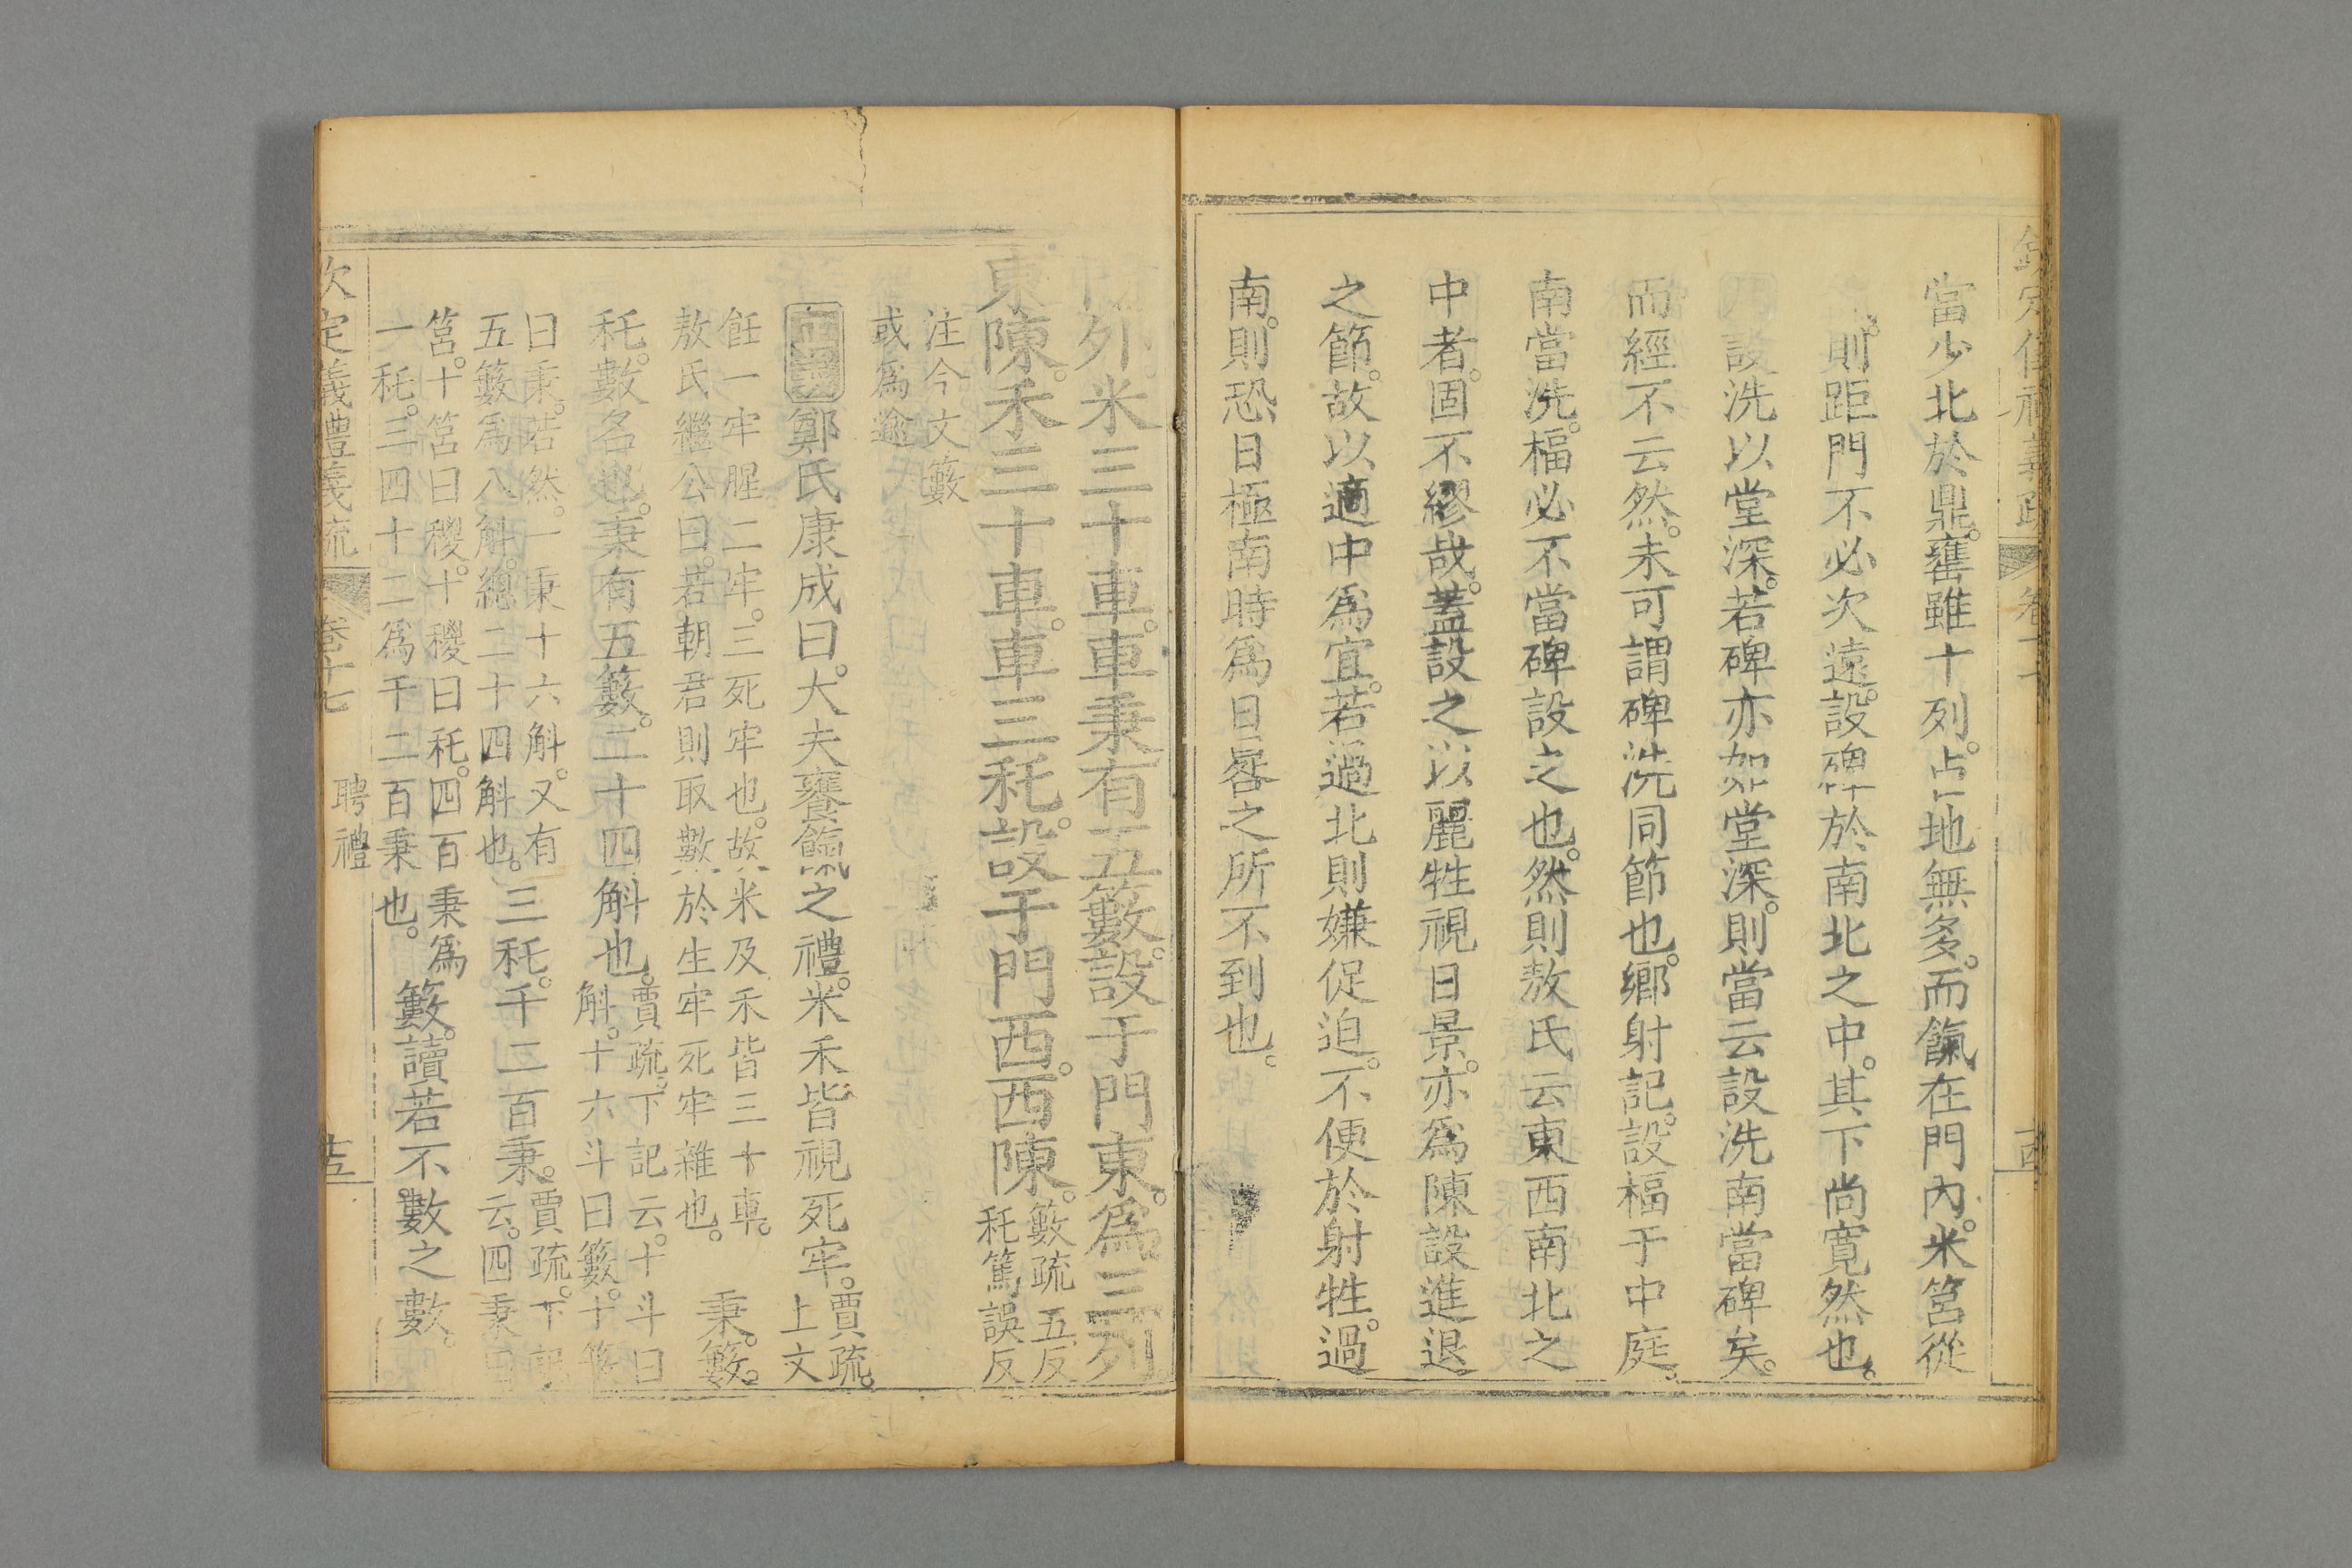 當少北於鼎。罋雖十列。占地無多。而餼在門內。米筥從
則距門不必次遠。設碑於南北之中。其下尚寬然也。
設洗以堂深。若碑亦如堂深。則當云設洗南當碑矣。
而經不云然。未可謂碑洗同節也。鄉射記。設楅于中庭。
南當洗。楅必不當碑設之也。然則敖氏云東西南北之
中者。固不繆哉。蓋設之以麗牲視日景。亦為陳設進退
之節。故以適中為宜。若過北則嫌促迫。不便於射牲。過
南。則恐日極南時為日晷之所不到也。
門外米三十車。車秉有五籔。設于門東。為三列
東陳。禾三十車。車三秅。設于門西。西陳。
籔疏五反
秅篤誤反
注今文籔
或為逾
鄭氏康成曰。大夫饔餼之禮。米禾皆視死牢。
賈疏。
上文
飪一牢腥二牢。三死牢也。故米及禾皆三十車。
敖氏繼公曰。若朝君則取數於生牢死牢雜也。
秉。籔。
秅。數名也。秉有五籔。二十四斛也。
賈疏。下記云。十斗曰
斛。十六斗曰籔。十籔
曰秉。若然。一秉十六斛。又有
五籔為八斛。總二十四斛也。
三秅。千二百秉。
賈疏。下記
云。四秉曰
筥。十筥曰稯。十稯曰秅。四百秉為
一秅。三四十二為千二百秉也。
籔。讀若不數之數。
欽定義禮義疏 卷十七 聘禮 十五